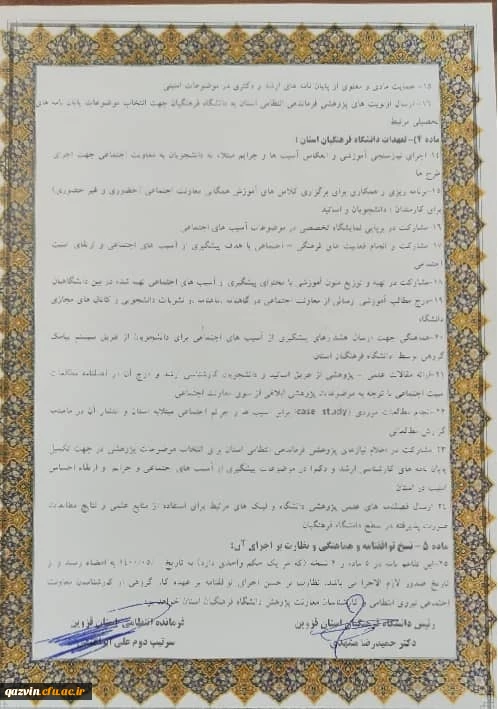 ۱۵- حمایت مادی و معنوی از پایان نامه های ارشد و دکتری در موضوعات امنیتی
۱۶- ارسال اولویت های پژوهشی فرماندهی انتظامی استان به دانشگاه فرهنگیان جهت انتخاب موضوعات پایان نامه های
تحصیلی مرتبط
ماده ۴)- تعهدات دانشگاه فرهنگیان استان :
۱۴-اجرای نیازسنجی آموزشی و انعکاس آسیب ها و جرایم مبتلابه دانشجویان به معاونت اجتماعی جهت اجرای
طرح ها
۱۵-برنامه ریزی و همکاری برای برگزاری کلاس های آموزش همگانی معاونت اجتماعی (حضوری و غیر حضوری)
برای کارمندان ، دانشجویان و اساتید
۱۶- مشارکت در برپایی نمایشگاه تخصصی در موضوعات آسیب های اجتماعی
۱۷- مشارکت و انجام فعالیت های فرهنگی - اجتماعی با هدف پیشگیری از آسیب های اجتماعی و ارتقای امنیت
اجتماعی
۱۸-مشارکت در تهیه و توزیع متون آموزشی با محتوای پیشگیری از آسیب های اجتماعی تهیه شده در بین دانشگاهیان
۱۹-درج مطالب آموزشی ارسالی از معاونت اجتماعی در گاهنامه ،ماهنامه و نشریات دانشجویی و کانال های مجازی
دانشگاه
۲۰-هماهنگی جهت ارسال هشدارهای پیشگیری از آسیب های اجتماعی برای دانشجویان از طریق سیستم پیامک
گروهی توسط دانشگاه فرهنگیان استان
۲۱-ارائه مقالات علمی - پژوهشی از طریق اساتید و دانشجویان کارشناسی ارشد و درج آن در فصلنامه مطالعات
امنیت اجتماعی با توجه به موضوعات پژوهشی ابلاغی از سوی معاونت اجتماعی
۲۲-انجام مطالعات موردی (case study) برابر آسیب ها و جرایم اجتماعی مبتلابه استان و انتشار آن در
گزارش مطالعاتی
۲۳-مشارکت در اعلام نیازهای پژوهشی فرماندهی انتظامی استان برای انتخاب موضوعات پژوهشی در جهت تکمیل
پایان نامه های کارشناسی ارشد و دکترا در موضوعات پیشگیری از آسیب های اجتماعی و جرایم و ارتقاء احساس
امنیت در استان
۲۴- ارسال فصلنامه های علمی پژوهشی دانشگاه و لینک های مرتبط برای استفاده از منابع علمی و نتایج مطالعات
صورت پذیرفته در سطح دانشگاه فرهنگیان
ماده ۵ – نسخ توافقنامه و هماهنگی و نظارت بر اجرای آن:
۲۵-این تفاهم نامه در ۵ ماده و ۲ نسخه (که هر یک حکم واحدی دارد) به تاریخ ۱۴۰۰/۰۵/ به امضاء رسید و از
تاریخ صدور لازم الاجرا می باشد. نظارت بر حسن اجرای توافقنامه بر عهده گروهی از کارشناسان معاونت
اجتماعی نیروی انتظامی و کارشناسان معاونت پژوهش دانشگاه فرهنگیان استان خواهد بود
رئیس دانشگاه فرهنگیان استان قزوین
دکتر حمیدرضا مشهدی
فرمانده انتظامی استان قزوین
سرتیپ دوم علی ابراهیمی
qazvin.cfu.ac.ir